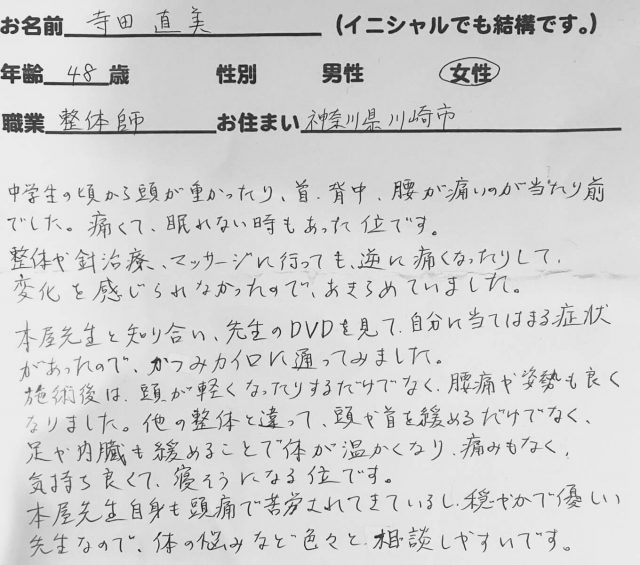 お名前 寺田 直美 (イニシャルでも結構です。)
年齢 48 歳 性別 男性 女性
職業 整体師 お住まい 神奈川県川崎市
中学生の頃から頭が重かったり、首、背中、腰が痛いのが当たり前
でした。痛くて、眠れない時もあった位です。
整体や針治療、マッサージに行っても、逆に痛くなったりして、
変化を感じられなかったので、あきらめていました。
本屋先生と知り合い、先生のDVDを見て、自分に当てはまる症状
があったので、かつみカイロに通ってみました。
施術後は、頭が軽くなったりするだけでなく、腰痛や姿勢も良く
なりました。他の整体と違って、頭や首を緩めるだけでなく、
足や内臓も緩めることで体が温かくなり、痛みもなく、
気持ち良くて、寝そうになる位です。
本屋先生自身も頭痛で苦労されてきているし、穏やかで優しい
先生なので、体の悩みなど色々と相談しやすいです。